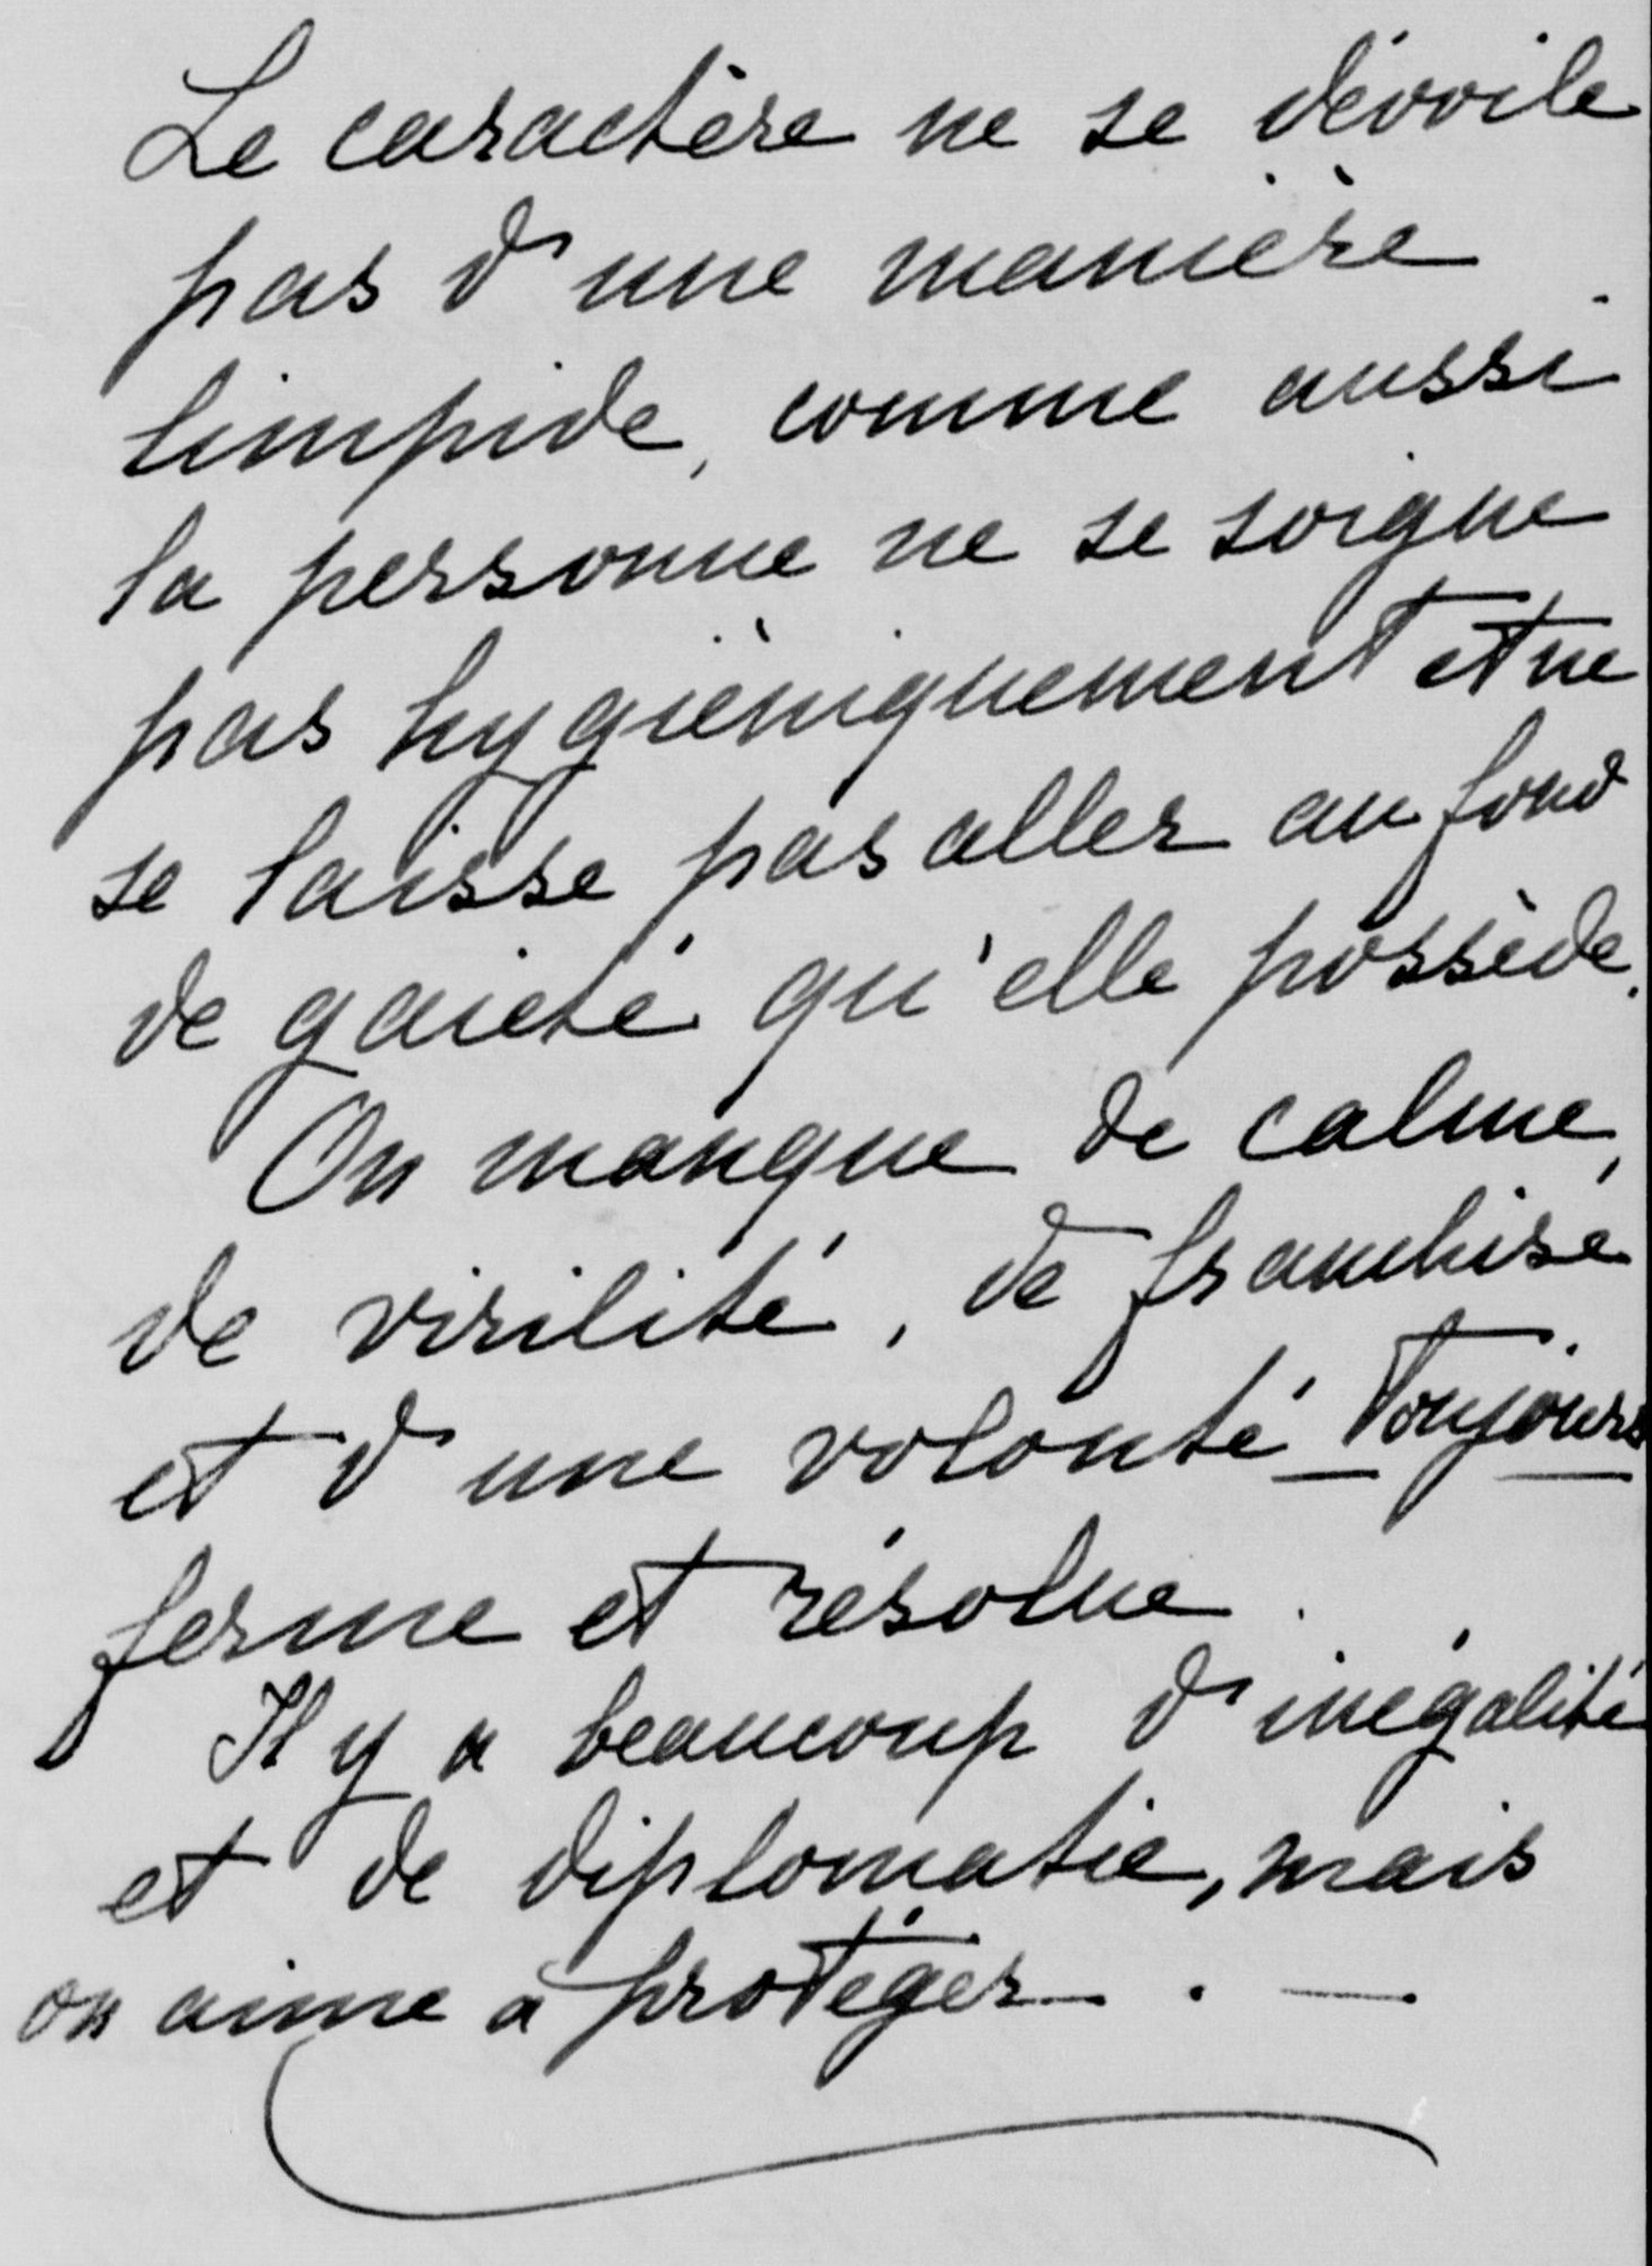 Le caractère ne se dévoile
pas d'une manière
limpide, comme aussi
la personne ne se soigne
pas hygièniquement et ne
se laisse pas aller au fond
de gaieté qu'elle possède.
On manque de calme,
de virilité, de franchise
et d'une volonté toujours
ferme et résolue.
Il y a beaucoup d'inégalité
et de diplomatie, mais
on aime à protéger. —